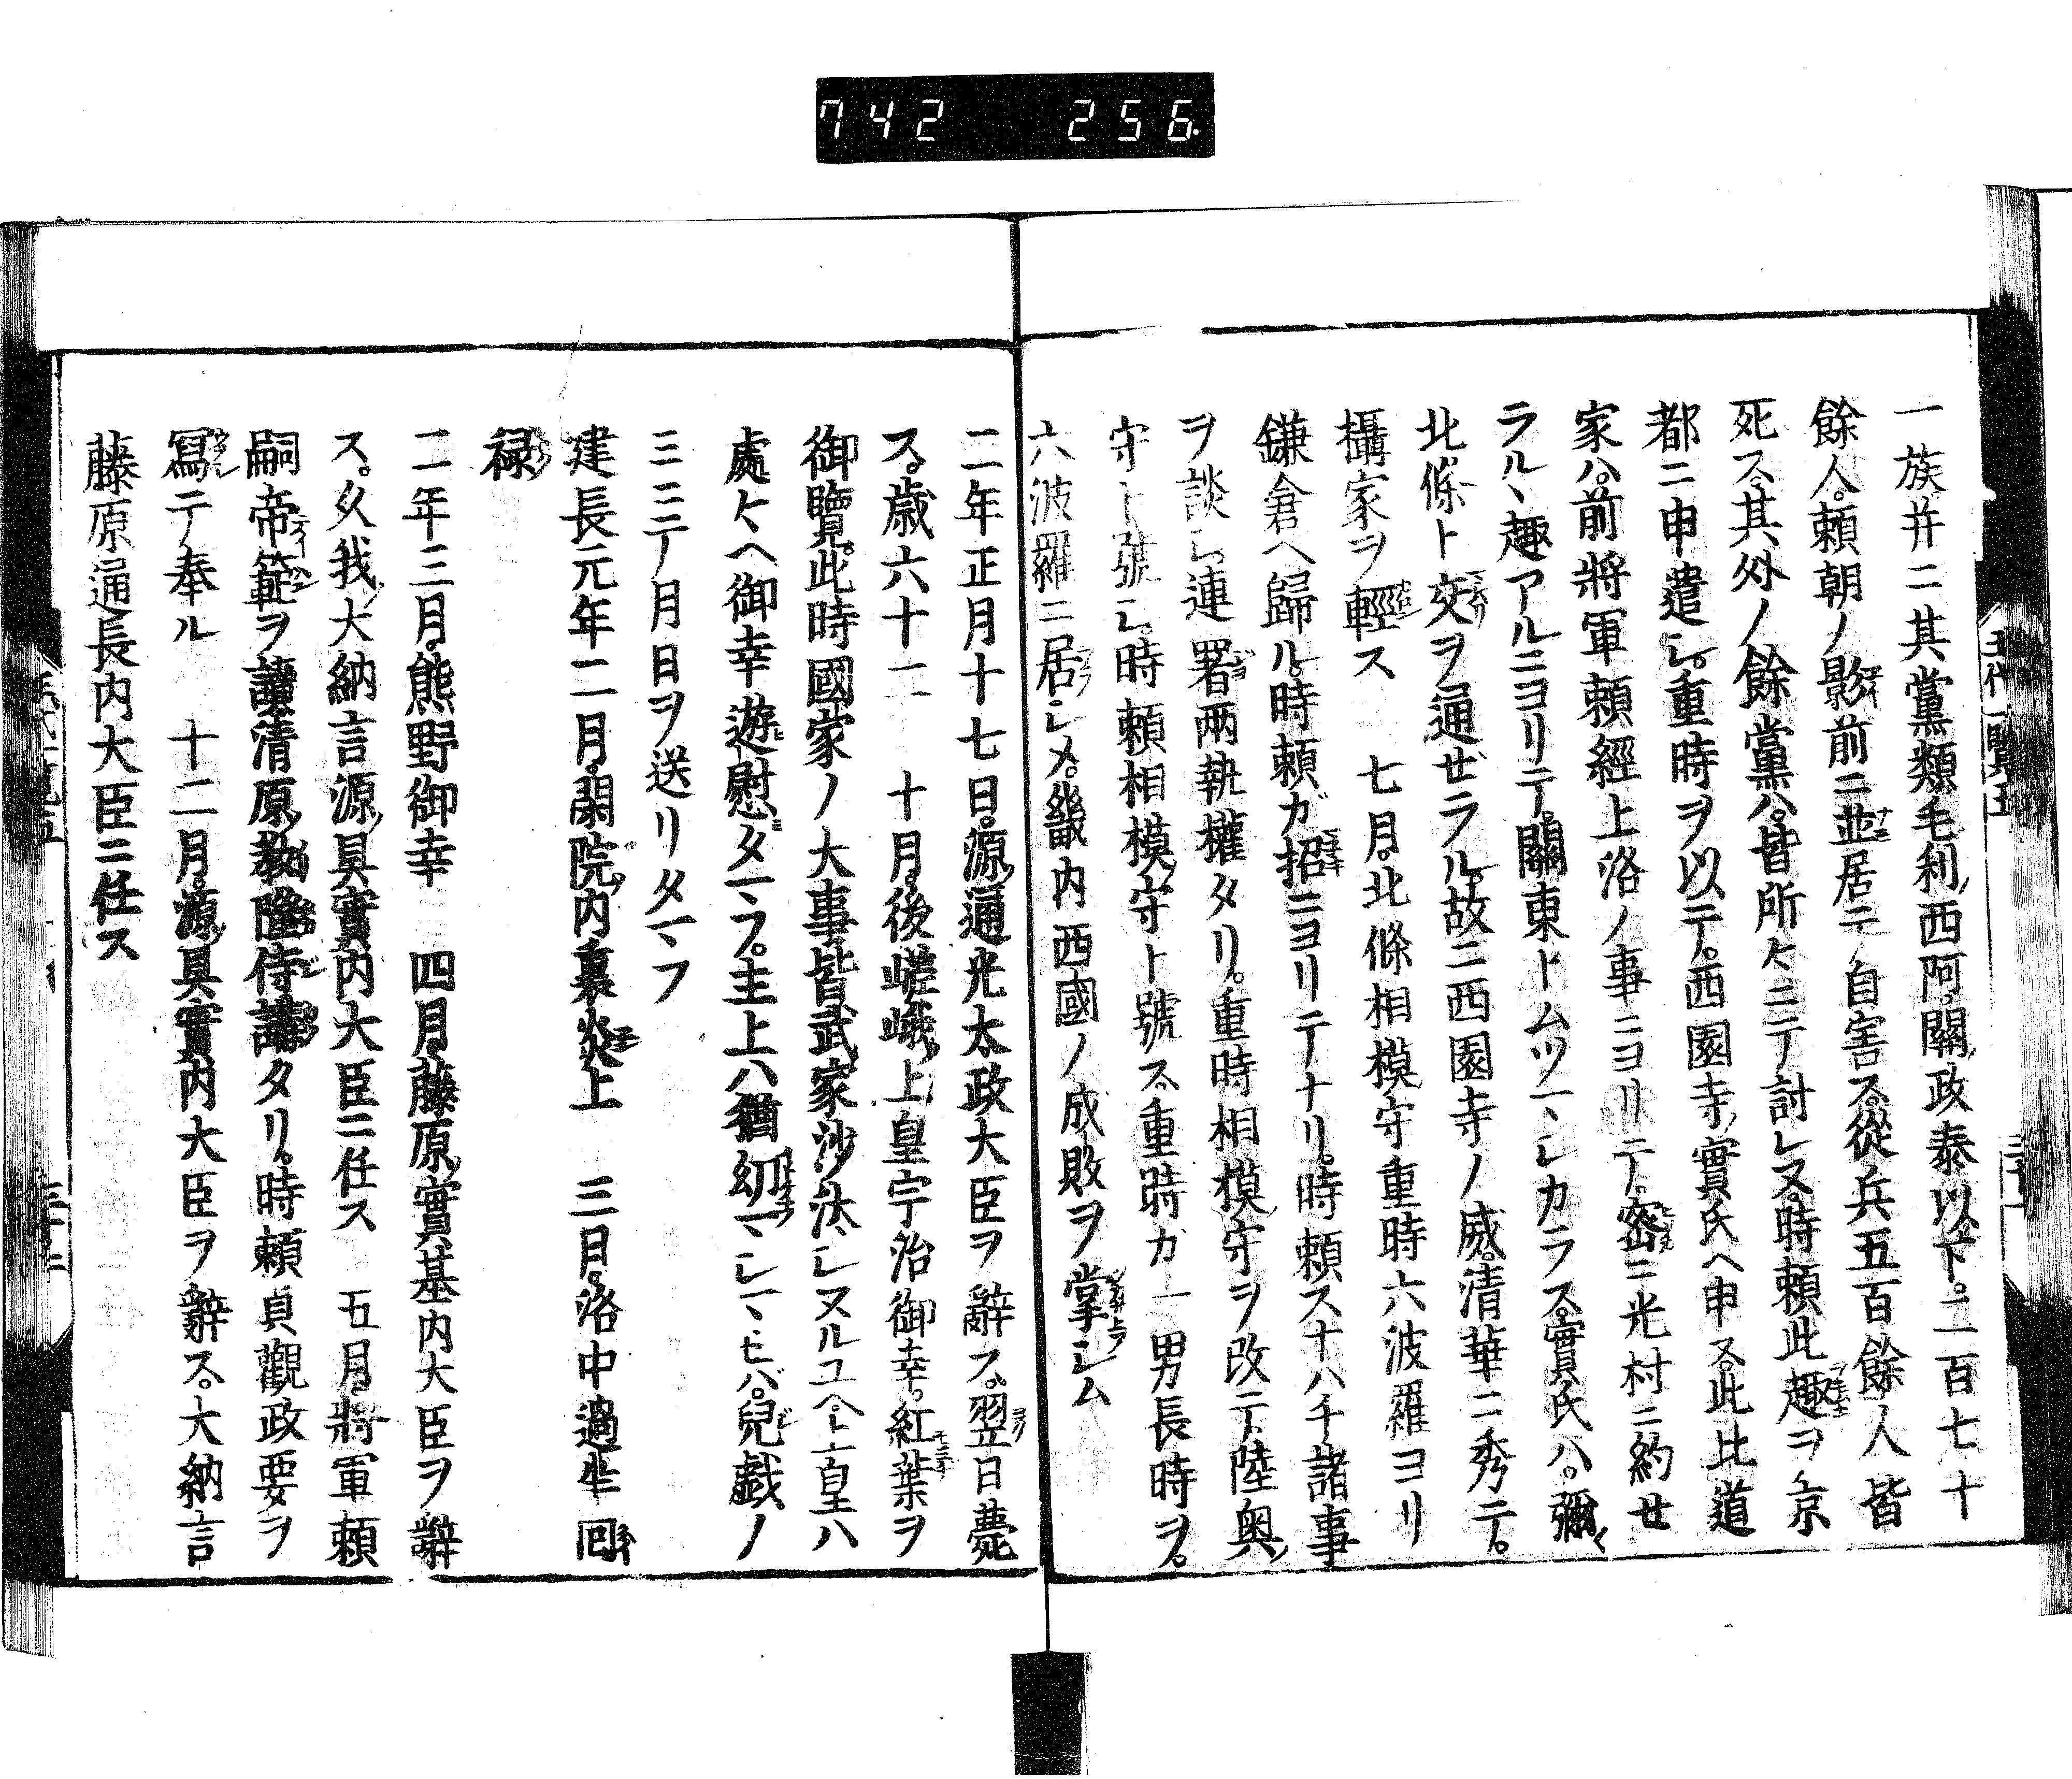 742 256
一族并ニ其黨類毛利西阿。關政泰以下。二百七十
餘人。頼朝ノ影前ニ並居テ自害ス。從兵五百餘人皆
死ス。其外ノ餘黨ハ。皆所々ニテ討レヌ。時頼此趣ヲ京
都ニ申遣シ。重時ヲ以テ。西園寺實氏ヘ申ス。此比道
家ハ。前將軍頼經上洛ノ事ニヨリテ。密ニ光村ニ約セ
ラルヽ趣アルニヨリテ。關東トムツマシカラス。實氏ハ。彌
北條ト交ヲ通ゼラル。故ニ西園寺ノ威。清華ニ秀テ。
攝家ヲ輕ス 七月。北條相模守重時六波羅ヨリ
鎌倉ヘ歸ル。時頼ガ招ニヨリテナリ。時頼スナハチ諸事
ヲ談シ連署兩執權タリ。重時相模守ヲ改テ。陸奥
守ト號シ。時頼相模守ト號ス。重時カ一男長時ヲ。
六波羅ニ居シメ。畿内西國ノ成敗ヲ掌シム
二年正月十七日。源通光太政大臣ヲ辭ス。翌日薨
ス。歳六十二 十月。後嵯峨上皇宇治御幸。紅葉ヲ
御覽。此時國家ノ大事。皆武家沙汰シヌルユヘ。上皇ハ
處々ヘ御幸遊慰タマフ。主上ハ猶幼マシマセバ。兒戯ノ
ミニテ月日ヲ送リタマフ
建長元年二月。閑院内裏炎上 三月。洛中過半回
禄
二年三月。熊野御幸 四月。藤原實基内大臣ヲ辭
ス。久我大納言源具實内大臣ニ任ス 五月。將軍頼
嗣帝範ヲ讀。清原教隆侍講タリ。時頼貞觀政要ヲ
寫テ奉ル 十二月。源具實内大臣ヲ辭ス。大納言
藤原通長内大臣ニ任ス